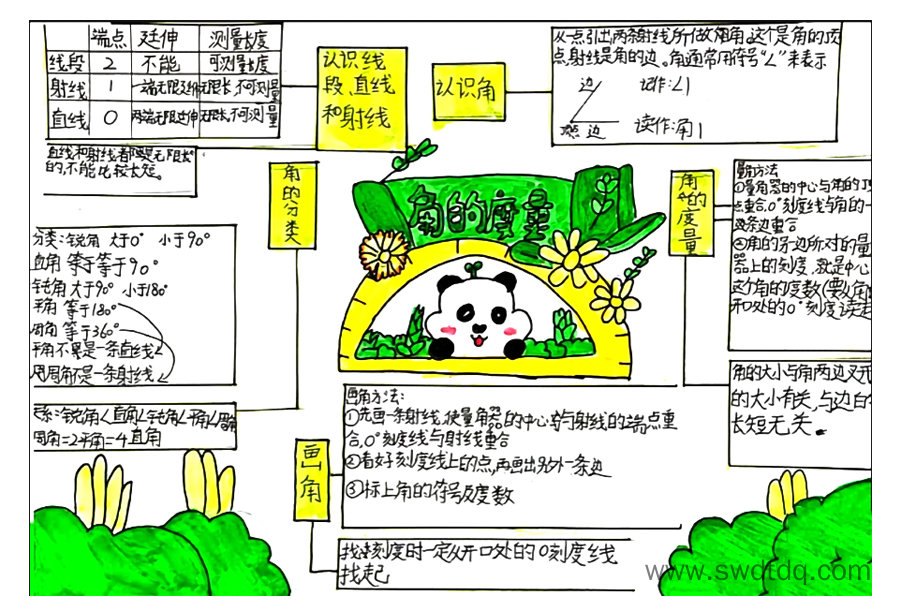 端点 延伸 测量长度
线段 2 不能 可测量长度
射线 1 一端无限延伸 无限长,不可测量
直线 0 两端无限延伸 无限长,不可测量
直线和射线都是无限长
的,不能比较长短。
认识线
段、直线
和射线
认识角
从一点引出两条射线所做
这个是角的顶
点,射线是角的边。角通常用符号“∠”来表示
边 记作:∠1
顶点 边 读作:角1
角的度量
角的分类
分类:锐角 大于0° 小于90°
直角 等于90°
钝角 大于90° 小于180°
平角 等于180°
周角 等于360°
平角不是一条直线
周角不是一条射线
系:锐角∠直角∠钝角∠平角∠周角
周角=2平角=4直角
角的度量
量角方法
①量角器的中心与角的顶
点重合,0°刻度线与角的一
条边重合
②角的另一边所对的量
器上的刻度,就是
这个角的度数(要从
开口处的0°刻度读起
角的大小与角两边叉开
的大小有关,与边的
长短无关。
画角
画角方法:
①先画一条射线,使量角器的中心与射线的端点重
合,0°刻度线与射线重合
②看好刻度线上的点,再画出另外一条边
③标上角的符号及度数
找刻度时一定从开口处的0刻度线
找起
www.swdtdq.com